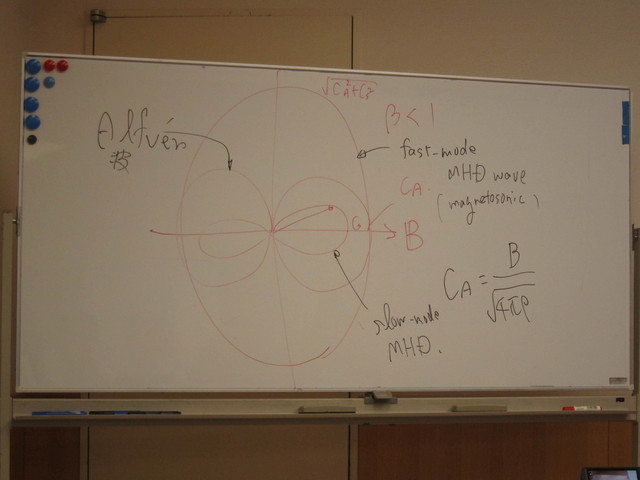 √C_A²+C_s²
β < 1
Alfvén
波
fast-mode
MHD wave
(magnetosonic)
C_A
B
C_A = B / √4πρ
slow-mode
MHD.